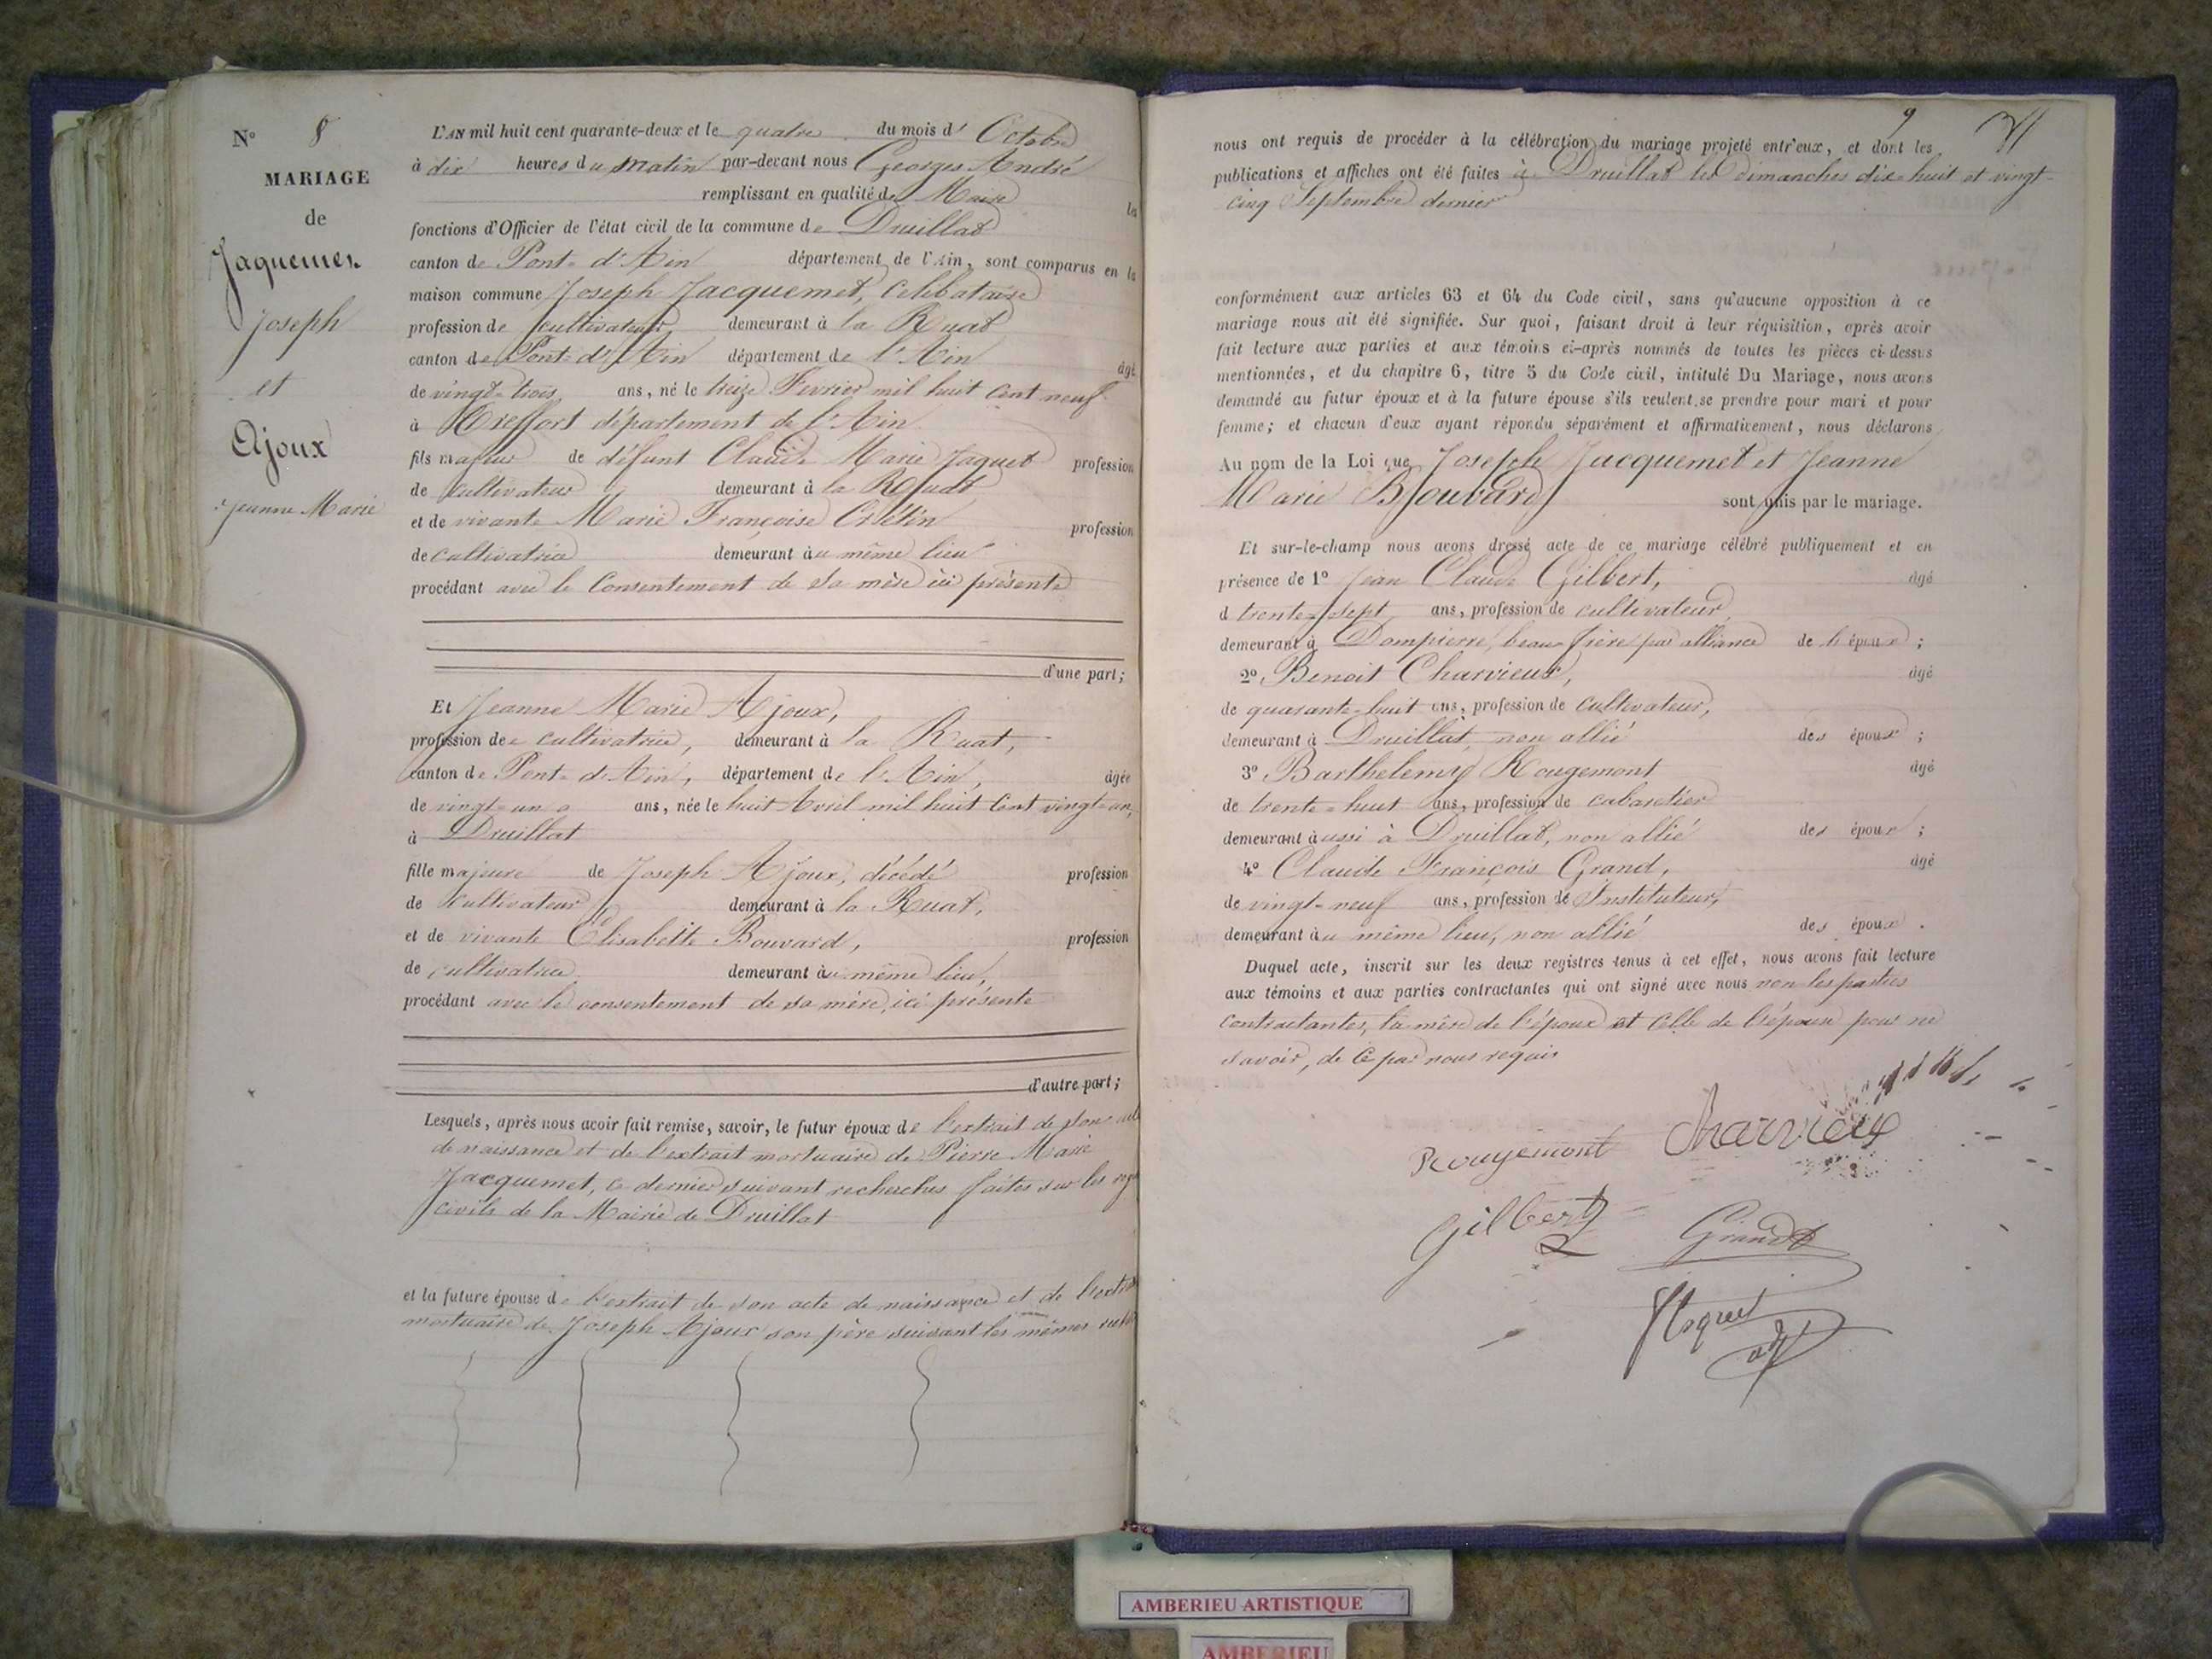 N° 8
MARIAGE
de
Jaquemet
Joseph
et
Ajoux
Jeanne Marie
L'AN mil huit cent quarante-deux et le quatre du mois d' Octobre
à dix heures du matin par-devant nous Georges André
remplissant en qualité de Maire les
fonctions d'Officier de l'état civil de la commune de Druillat
canton de Pont-d'Ain département de l'Ain, sont comparus en la
maison commune Joseph Jacquemet, Célibataire
profession de cultivateur demeurant à la Ruat
canton de Pont-d'Ain département de l'Ain âgé
de vingt-trois ans, né le treize Fevrier mil huit cent neuf
à Treffort département de l'Ain
fils majeur de défunt Claude Marie Jaquet profession
de cultivateur demeurant à la Ruat
et de vivante Marie Françoise Crétin profession
de cultivatrice demeurant au même lieu
procédant avec le Consentement de sa mère ici présente
d'une part;
Et Jeanne Marie Ajoux,
profession de cultivatrice, demeurant à la Ruat,
canton de Pont-d'Ain, département de l'Ain, âgée
de vingt-un ans, née le huit Avril mil huit Cent vingt-un,
à Druillat
fille majeure de Joseph Ajoux, décédé profession
de cultivateur demeurant à la Ruat,
et de vivante Elisabette Bouvard, profession
de cultivatrice demeurant au même lieu,
procédant avec le consentement de sa mère, ici présente
d'autre part;
Lesquels, après nous avoir fait remise, savoir, le futur époux de l'extrait de son
de naissance et de l'extrait mortuaire de Pierre Marie
Jacquemet, ce dernier suivant recherches faites sur les
civils de la Mairie de Druillat
et la future épouse de l'extrait de son acte de naissance et de
mortuaire de Joseph Ajoux son père suivant les mêmes
9
nous ont requis de procéder à la célébration du mariage projeté entr'eux, et dont les
publications et affiches ont été faites à Druillat les dimanches dix-huit et vingt-
cinq Septembre dernier
conformément aux articles 63 et 64 du Code civil, sans qu'aucune opposition à ce
mariage nous ait été signifiée. Sur quoi, faisant droit à leur réquisition, après avoir
fait lecture aux parties et aux témoins ci-après nommés de toutes les pièces ci-dessus
mentionnées, et du chapitre 6, titre 5 du Code civil, intitulé Du Mariage, nous avons
demandé au futur époux et à la future épouse s'ils veulent se prendre pour mari et pour
femme; et chacun d'eux ayant répondu séparément et affirmativement, nous déclarons
Au nom de la Loi que Joseph Jacquemet et Jeanne
Marie Bouvard sont unis par le mariage.
Et sur-le-champ nous avons dressé acte de ce mariage célébré publiquement et en
présence de 1° Jean Claude Gilbert, âgé
d trente-sept ans, profession de cultivateur
demeurant à Dompierre, beau-frère par alliance de l'époux;
2° Benoit Charvieux, âgé
de quarante-huit ans, profession de Cultivateur,
demeurant à Druillat, non allié des époux;
3° Barthelemy Rougemont âgé
de trente-huit ans, profession de cabaretier
demeurant aussi à Druillat, non allié des époux;
4° Claude François Grand, âgé
de vingt-neuf ans, profession de Instituteur,
demeurant au même lieu, non allié des époux.
Duquel acte, inscrit sur les deux registres tenus à cet effet, nous avons fait lecture
aux témoins et aux parties contractantes qui ont signé avec nous non les parties
contractantes, la mère de l'époux et Celle de l'épouse pour ne
savoir, de Ce par nous requis
Rougemont Charvieux
Gilbert Grand
AMBERIEU ARTISTIQUE
AMBERIEU